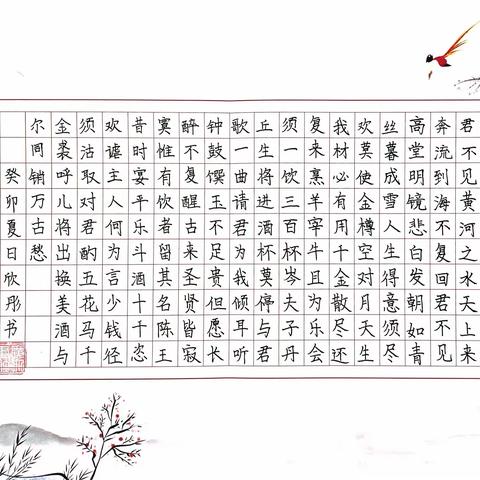 君不见黄河之水天上来
奔流到海不复回君不见
高堂明镜悲白发朝如青
丝暮成雪人生得意须尽
欢莫使金樽空对月天生
我材必有用千金散尽还
复来烹羊宰牛且为乐会
须一饮三百杯岑夫子丹
丘生将进酒杯莫停与君
歌一曲请君为我倾耳听
钟鼓馔玉不足贵但愿长
醉不复醒古来圣贤皆寂
寞惟有饮者留其名陈王
昔时宴平乐斗酒十千恣
欢谑主人何为言少钱径
须沽取对君酌五花马千
金裘呼儿将出换美酒与
尔同销万古愁
癸卯夏日欣彤书